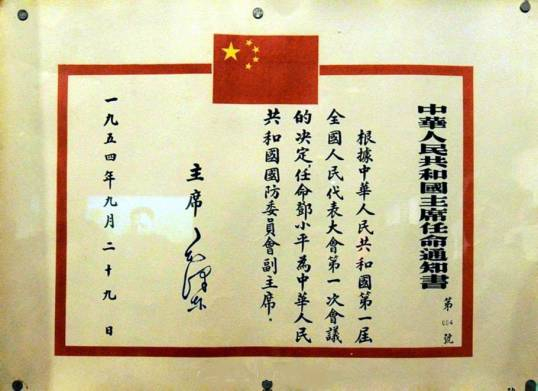 中華人民共和國主席任命通知書
第 004 號
根據中華人民共和國第一屆
全國人民代表大會第一次會議
的决定，任命鄧小平為中華人民
共和國國防委員會副主席．
主席 毛澤东
一九五四年九月二十九日